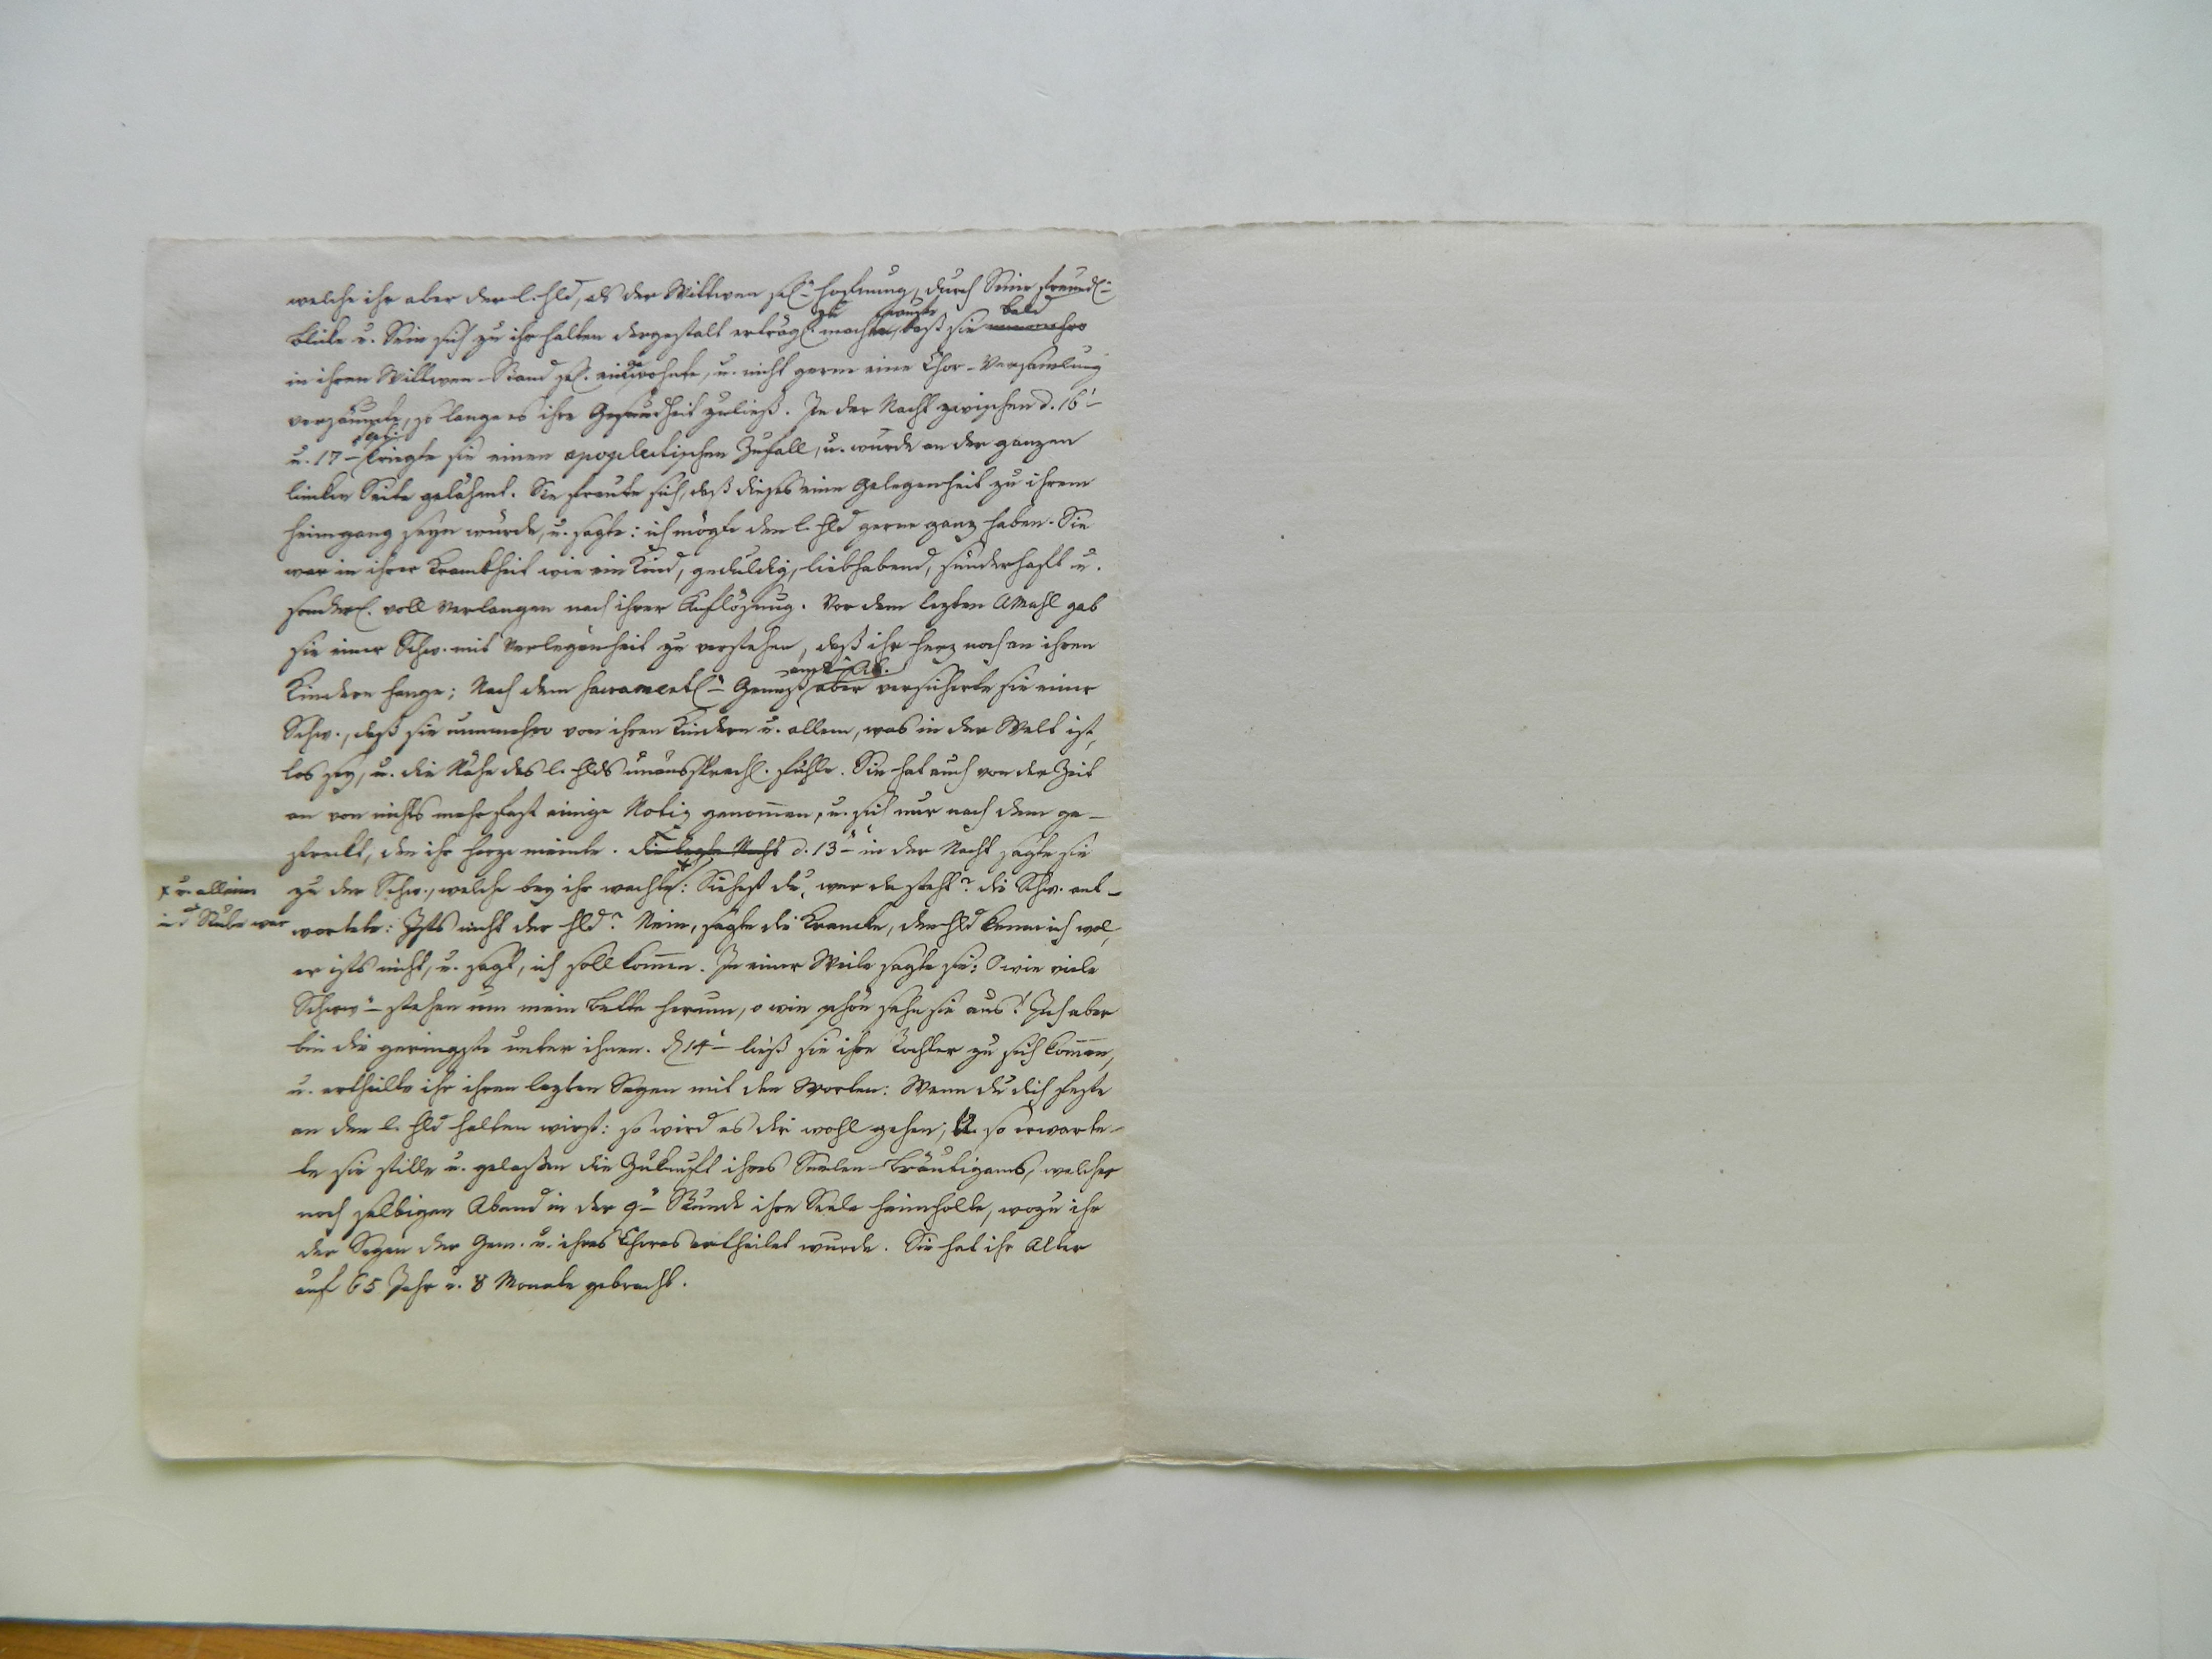 welche ihr aber der l. Hld, als der Wittwen sel. Hoffnung, durch Seine freundl.
Blicke u. Sein sich zu ihr halten dergestalt erträgl. zu machen wuste, daß sie nunmehro bald
in ihren Wittwen-Stand sel. einwohnte, u. nicht gerne eine Chor-Versamlung
versäumte, so lange es ihre Gesundheit zuließ. In der Nacht zwischen d. 16t
u. 17ten kriegte sie einen apoplectischen Zufall, u. wurde an der ganzen
lincken Seite gelähmt. Sie freute sich, daß dieses eine Gelegenheit zu ihrem
Heimgang seyn würde, u. sagte: ich mögte den l. Hld gerne ganz haben. Sie
war in ihrer Krankheit wie ein Kind, geduldig, liebhabend, sünderhaft u.
sonderl. voll Verlangen nach ihrer Auflösung. Vor dem lezten AMahl gab
sie einer Schw. mit Verlegenheit zu verstehen, daß ihr Herz noch an ihren
Kindern hange; Nach dem Sacramentl. Genuß aber versicherte sie einer
Schw., daß sie nunmehro von ihren Kindern u. allem, was in der Welt ist,
los sey, u. die Nähe des l. Hlds unaussprechl. fühle. Sie hat auch von der Zeit
an von nichts mehr fast einige Notiz genom̄en, u. sich nur nach dem ge-
streckt, den ihr Herze meinte. Die lezte Nacht d. 13t in der Nacht sagte sie
zu der Schw., welche bey ihr wachte: Siehest du, wer da steht? die Schw. ant-
x u. allein
in d Stube war
wortete: Ists nicht der Hld? Nein, sagte die Krancke, den Hld kenne ich wol,
er ists nicht, u. sagt, ich soll kom̄en. In einer Weile sagte sie: O wie viele
Schwn stehen um mein Bette herum, o wie schön sehn sie aus! Ich aber
bin die geringste unter ihnen. D 14t ließ sie ihre Tochter zu sich kom̄en,
u. ertheilte ihr ihren lezten Segen mit den Worten: Wenn du dich feste
an den l. Hld halten wirst: so wird es dir wohl gehen; U. so erwarte-
te sie stille u. gelaßen die Zukunft ihres Seelen-Bräutigams, welcher
noch selbigen Abend in der 9ten Stunde ihre Seele heimholte, wozu ihr
der Segen der Gem. u. ihres Chores ertheilet wurde. Sie hat ihr Alter
auf 65 Jahr u. 8 Monate gebracht.